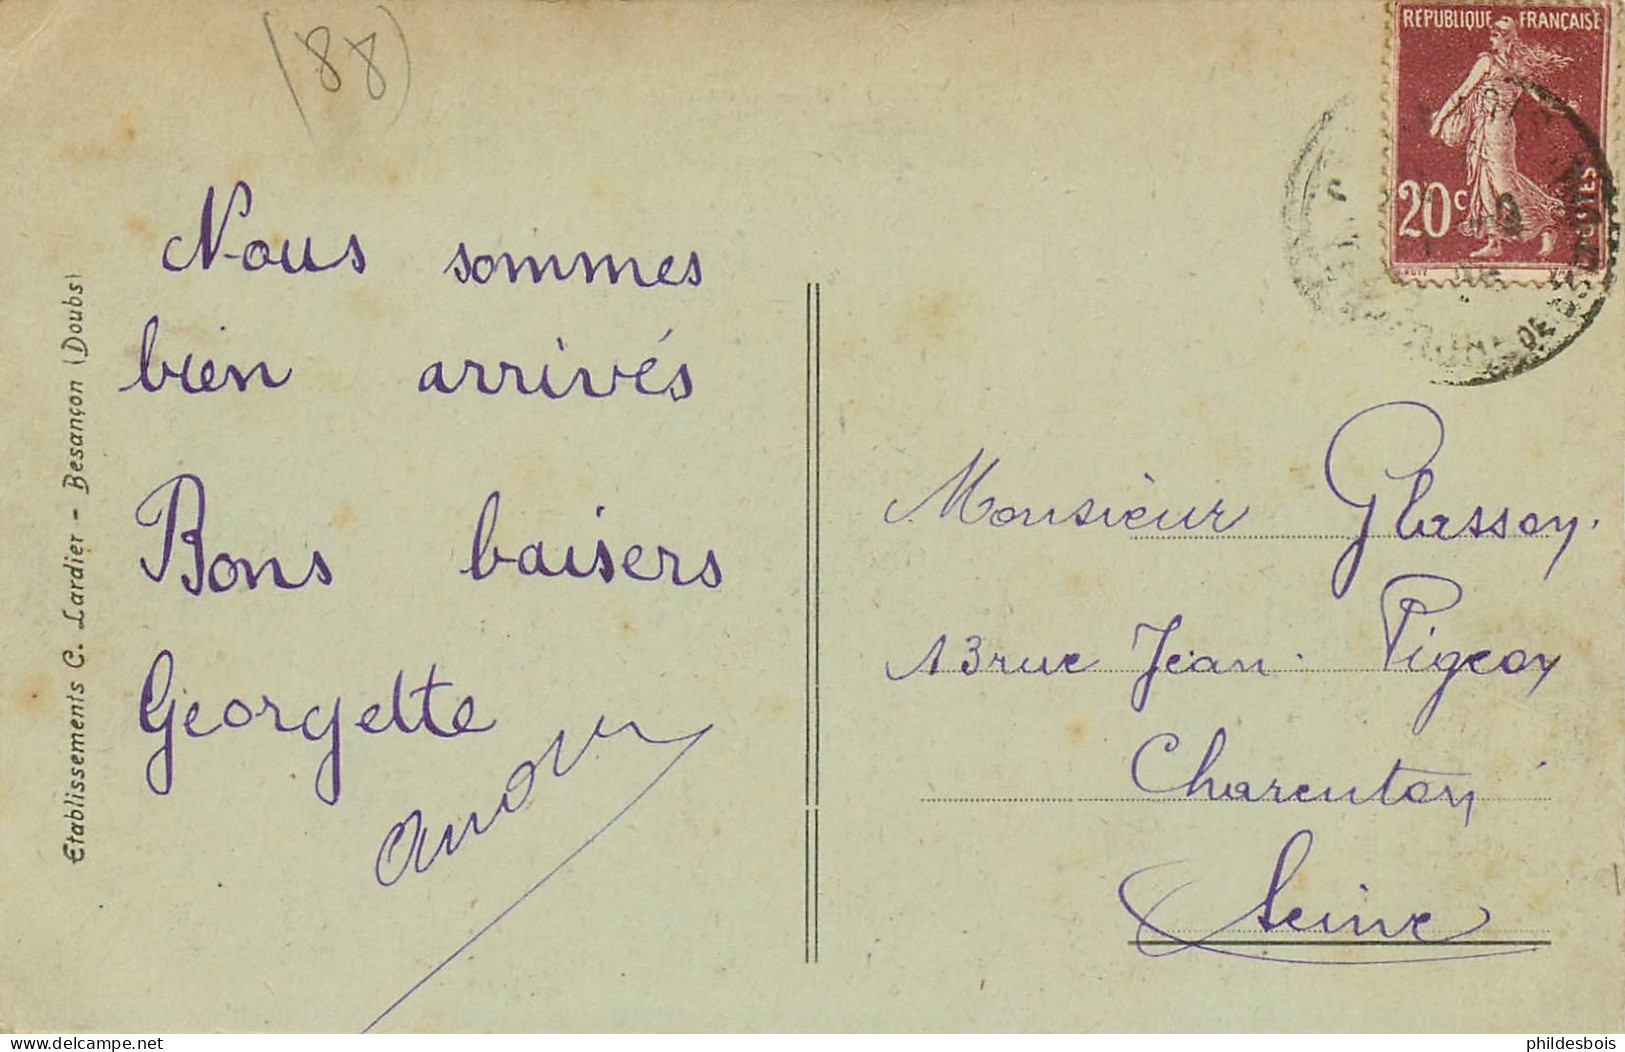 (88)
Nous sommes
bien arrivés
Bons baisers
Georgette
Etablissements C. Lardier - Besançon (Doubs)
REPUBLIQUE FRANÇAISE
20c
POSTES
DE
Monsieur Glasson.
13 rue Jean Pigeon
Charenton
Seine
delcampe.net
phildesbois